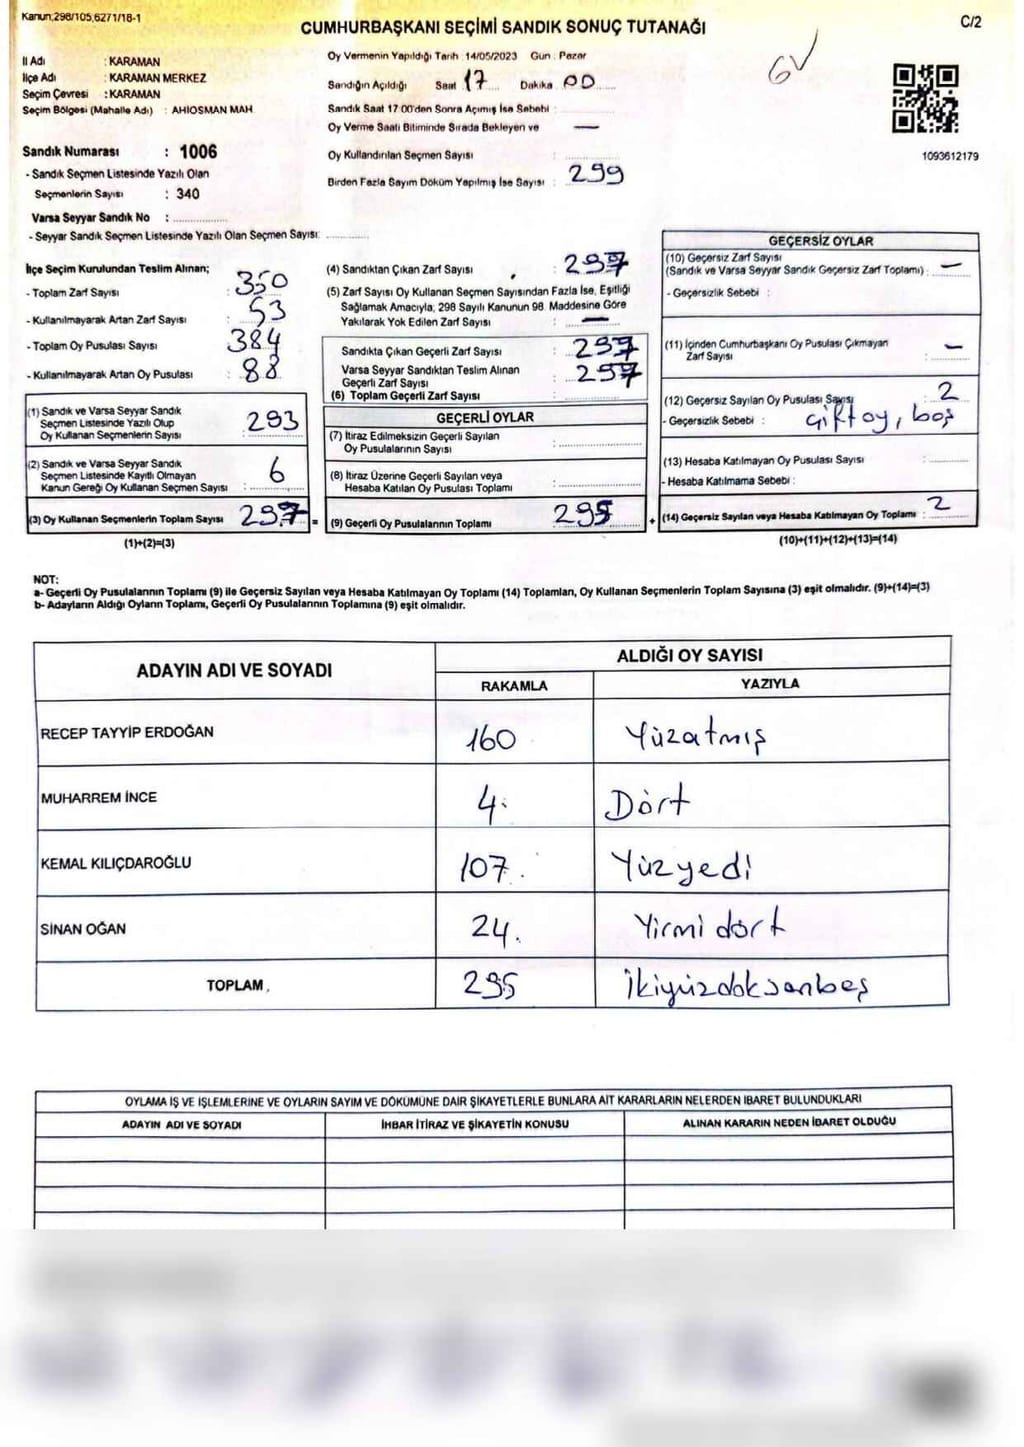 Kanun;298/105,6271/18-1
CUMHURBAŞKANI SEÇİMİ SANDIK SONUÇ TUTANAĞI
C/2
İl Adı : KARAMAN
İlçe Adı : KARAMAN MERKEZ
Seçim Çevresi : KARAMAN
Seçim Bölgesi (Mahalle Adı) : AHİOSMAN MAH
Oy Vermenin Yapıldığı Tarih :14/05/2023 Gün : Pazar
Sandığın Açıldığı Saat 17 Dakika 00
Sandık Saat 17:00'den Sonra Açımış İse Sebebi :
Oy Verme Saati Bitiminde Sırada Bekleyen ve —
Oy Kullandırılan Seçmen Sayısı :
Birden Fazla Sayım Döküm Yapılmış İse Sayısı : 299
1093612179
Sandık Numarası : 1006
- Sandık Seçmen Listesinde Yazılı Olan
Seçmenlerin Sayısı : 340
Varsa Seyyar Sandık No :
- Seyyar Sandık Seçmen Listesinde Yazılı Olan Seçmen Sayısı:
İlçe Seçim Kurulundan Teslim Alınan;
- Toplam Zarf Sayısı : 350
- Kullanılmayarak Artan Zarf Sayısı : 53
- Toplam Oy Pusulası Sayısı : 384
- Kullanılmayarak Artan Oy Pusulası : 88
(1) Sandık ve Varsa Seyyar Sandık
Seçmen Listesinde Yazılı Olup
Oy Kullanan Seçmenlerin Sayısı : 293
(2) Sandık ve Varsa Seyyar Sandık
Seçmen Listesinde Kayıtlı Olmayan
Kanun Gereği Oy Kullanan Seçmen Sayısı : 6
(3) Oy Kullanan Seçmenlerin Toplam Sayısı 297 =
(1)+(2)=(3)
(4) Sandıktan Çıkan Zarf Sayısı : 297
(5) Zarf Sayısı Oy Kullanan Seçmen Sayısından Fazla İse, Eşitliği
Sağlamak Amacıyla; 298 Sayılı Kanunun 98. Maddesine Göre
Yakılarak Yok Edilen Zarf Sayısı : —
Sandıkta Çıkan Geçerli Zarf Sayısı : 297
Varsa Seyyar Sandıktan Teslim Alınan
Geçerli Zarf Sayısı : 297
(6) Toplam Geçerli Zarf Sayısı :
GEÇERLİ OYLAR
(7) İtiraz Edilmeksizin Geçerli Sayılan
Oy Pusulalarının Sayısı :
(8) İtiraz Üzerine Geçerli Sayılan veya
Hesaba Katılan Oy Pusulası Toplamı :
(9) Geçerli Oy Pusulalarının Toplamı : 295 +
GEÇERSİZ OYLAR
(10) Geçersiz Zarf Sayısı
(Sandık ve Varsa Seyyar Sandık Geçersiz Zarf Toplamı) : —
- Geçersizlik Sebebi :
(11) İçinden Cumhurbaşkanı Oy Pusulası Çıkmayan
Zarf Sayısı : —
(12) Geçersiz Sayılan Oy Pusulası Sayısı : 2
- Geçersizlik Sebebi : çift oy, boş
(13) Hesaba Katılmayan Oy Pusulası Sayısı :
- Hesaba Katılmama Sebebi :
(14) Geçersiz Sayılan veya Hesaba Katılmayan Oy Toplamı : 2
(10)+(11)+(12)+(13)=(14)
NOT:
a- Geçerli Oy Pusulalarının Toplamı (9) ile Geçersiz Sayılan veya Hesaba Katılmayan Oy Toplamı (14) Toplamları, Oy Kullanan Seçmenlerin Toplam Sayısına (3) eşit olmalıdır. (9)+(14)=(3)
b- Adayların Aldığı Oyların Toplamı, Geçerli Oy Pusulalarının Toplamına (9) eşit olmalıdır.
ADAYIN ADI VE SOYADI
ALDIĞI OY SAYISI
RAKAMLA YAZIYLA
RECEP TAYYİP ERDOĞAN 160 Yüzatmış
MUHARREM İNCE 4. Dört
KEMAL KILIÇDAROĞLU 107. Yüzyedi
SİNAN OĞAN 24. Yirmi dört
TOPLAM 295 İkiyüzdoksanbeş
OYLAMA İŞ VE İŞLEMLERİNE VE OYLARIN SAYIM VE DÖKÜMÜNE DAİR ŞİKAYETLERLE BUNLARA AİT KARARLARIN NELERDEN İBARET BULUNDUKLARI
ADAYIN ADI VE SOYADI İHBAR İTİRAZ VE ŞİKAYETİN KONUSU ALINAN KARARIN NEDEN İBARET OLDUĞU